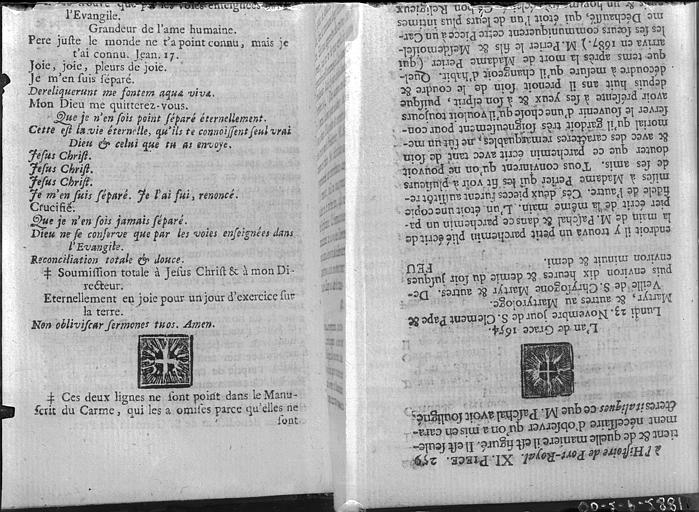 l'Evangile.
Grandeur de l'ame humaine.
Pere juſte le monde ne t'a point connu, mais je
t'ai connu. Jean. 17.
Joie, joie, pleurs de joie.
Je m'en ſuis ſéparé.
Dereliquerunt me fontem aquæ vivæ.
Mon Dieu me quitterez-vous.
Que je n'en ſois point ſéparé éternellement.
Cette eſt la vie éternelle, qu'ils te connoiſſent ſeul vrai
Dieu & celui que tu as envoye.
Jeſus Chriſt.
Jeſus Chriſt.
Jeſus Chriſt.
Je m'en ſuis ſéparé. Je l'ai fui, renoncé.
Crucifié.
Que je n'en ſois jamais ſéparé.
Dieu ne ſe conſerve que par les voies enſeignées dans
l'Evangile.
Reconciliation totale & douce.
‡ Soumiſſion totale à Jeſus Chriſt & à mon Di-
recteur.
Eternellement en joie pour un jour d'exercice ſur
la terre.
Non obliviſcar ſermones tuos. Amen.
‡ Ces deux lignes ne ſont point dans le Manu-
ſcrit du Carme, qui les a omiſes parce qu'elles ne
ſont
à l'Hiſtoire de Port-Royal. XI. PIECE. 259
tient & de quelle maniere il eſt figuré. Il eſt ſeule-
ment néceſſaire d'obſerver qu'on a mis en cara-
cteres italiques ce que M. Paſchal avoit ſouligné.
L'an de Grace 1654.
Lundi 23. Novembre jour de S. Clement Pape &
Martyr, & autres au Martyrologe.
Veille de S. Chryſogone Martyr & autres. De-
puis environ dix heures & demie du ſoir juſques
environ minuit & demi.
FEU
endroit il y trouva un petit parchemin plié écrit de
la main de M. Paſchal & dans ce parchemin un pa-
pier écrit de la même main. L'un étoit une copie
fidéle de l'autre. Ces deux pieces furent auſſitôt re-
miſes à Madame Perier qui les fit voir à pluſieurs
de ſes amis. Tous convinrent qu'on ne pouvoit
douter que ce parchemin écrit avec tant de ſoin
& avec des caractéres remarquables, ne fût un me-
morial qu'il gardoit très ſoigneuſement pour con-
ſerver le ſouvenir d'une choſe qu'il vouloit toujours
avoir préſente à ſes yeux & à ſon eſprit, puiſque
depuis huit ans il prenoit ſoin de le coudre &
découdre à meſure qu'il changeoit d'habit. Quel-
que tems après la mort de Madame Perier (qui
arriva en 1687.) M. Perier le fils & Meſdemoiſel-
les ſes ſœurs communiquerent cette Piéce à un Car-
me Déchauſſé, qui étoit l'un de leurs plus intimes